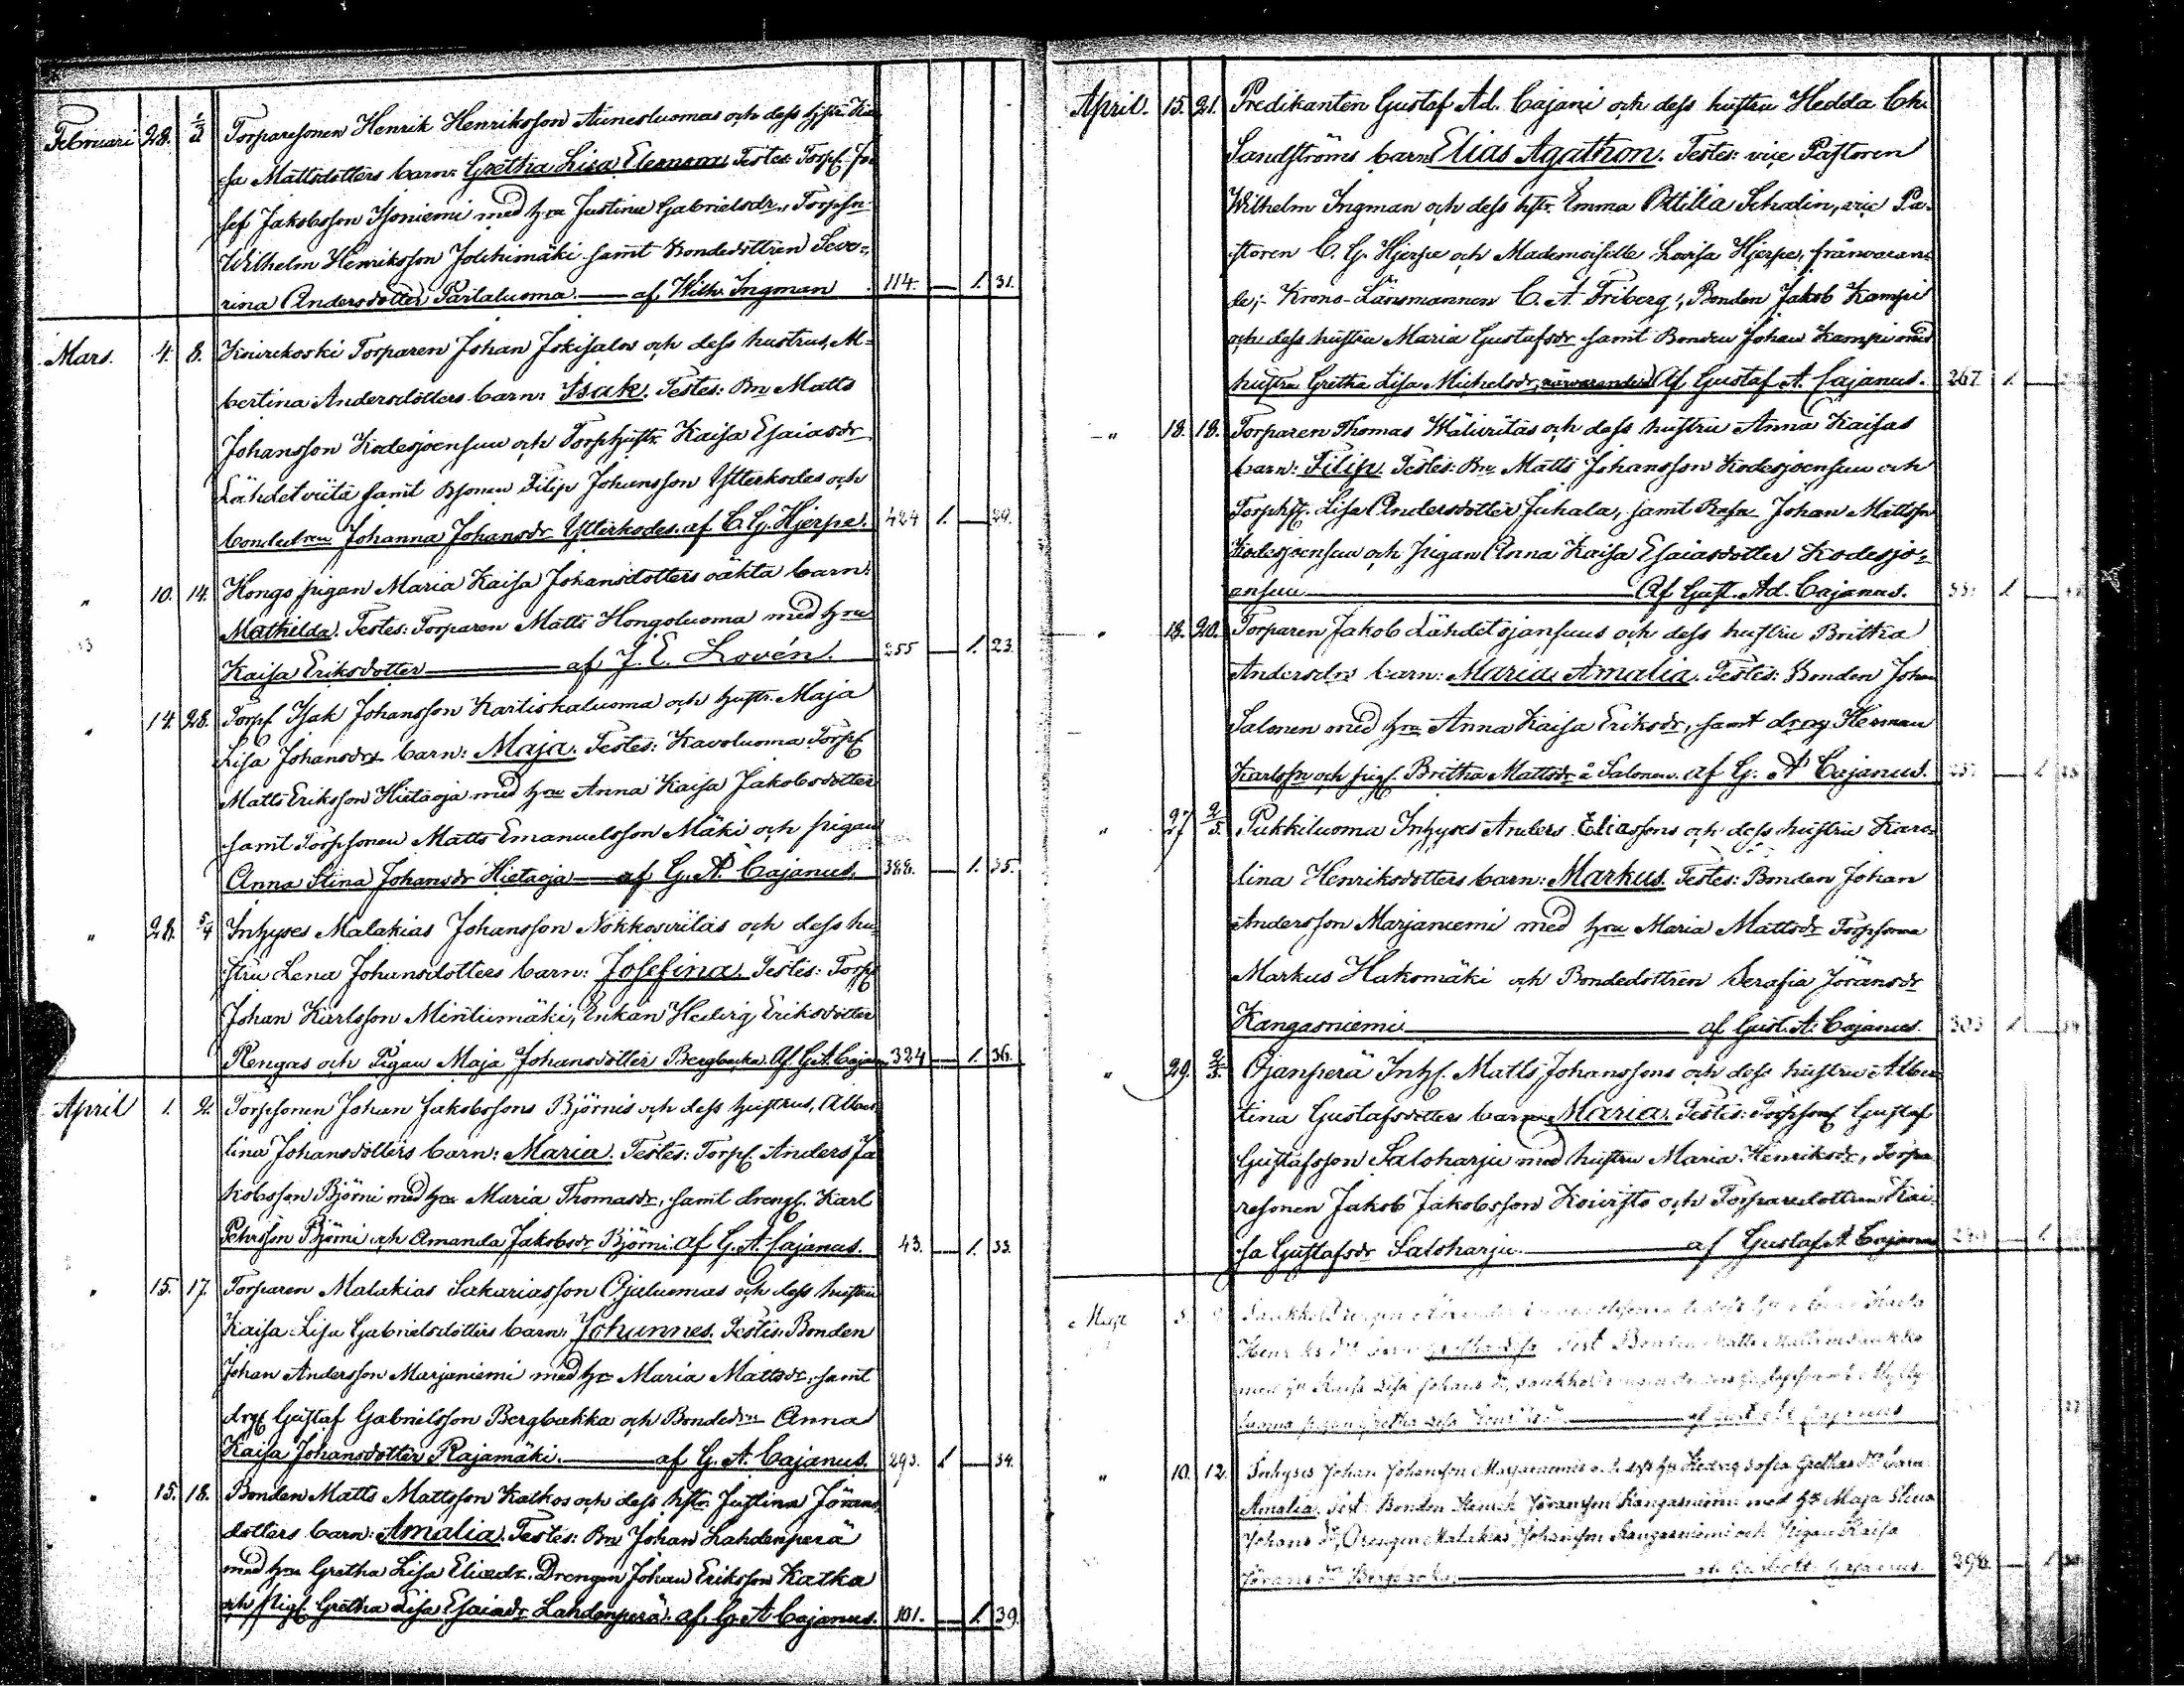 Februari 28. 1/3 Torparesonen Henrik Henriksson Auneoluomas och dess hstr. Kai
sa Mattsdotters barn: Gretha Lisa Eleonora. Testes: Torpf. Jo
sef Jakobsson Isoniemi med hru Justina Gabrielsdr., Torpsn
Wilhelm Henriksson Jolihimäki samt Bondedottren Seve
rina Andersdotter Parlaluoma — af Wilh. Ingman 114. — 1. 31.
Mars. 4. 8. Koirikoski Torparen Johan Jokisalos och dess hustrus, Al
bertina Andersdotters barn: Isak. Testes: Bn Matts
Johansson Kodesjoensuu och Torphustr. Kaisa Esaiasdr
Lähdetviita samt Bsonen Filip Johansson Ytterkodes och
bondedren Johanna Johansdr Ytterkodes. af C. G. Hjerpe. 424 1. — 29.
" 10. 14. Hongo pigan Maria Kaisa Johansdotters oäkta barn:
Mathilda. Testes: Torparen Matts Hongoluoma med hru
Kaisa Eriksdotter — af J. E. Lovén. 255 — 1. 23.
" 14. 28. Torpf Isak Johansson Kartiskaluoma och hustr. Maja
Lisa Johansdrs barn: Maja. Testes: Kavoluoma Torpf
Matts Eriksson Hietaoja med hru Anna Kaisa Jakobsdotter
samt Torpsonen Matts Emanuelsson Mäki och pigan
Anna Stina Johansdr Hietaoja — af G. A. Cajanus. 388. — 1. 35.
" 28. 5/4 Inhyses Malakias Johansson Nokkosviitas och dess hu
stru Lena Johansdotters barn: Josefina. Testes: Torpf
Johan Karlsson Minttumäki, Enkan Hedvig Eriksdotter
Rengas och Pigan Maja Johansdotter Bergbacka. Af G. A. Cajanus 324 — 1. 36.
April 1. 2. Torpsonen Johan Jakobssons Björnis och dess hustrus, Alber
tina Johansdotters barn: Maria. Testes: Torpf. Anders Ja
kobsson Björni med hru Maria Thomasdr, samt drengf. Karl
Pehrsson Björni och Amanda Jakobsdr Björni. af G. A. Cajanus. 43. — 1. 33.
" 15. 17. Torparen Malakias Sakariasson Ojaluomas och dess hustru
Kaisa Lisa Gabrielsdotters barn: Johannes. Testes: Bonden
Johan Andersson Marjaniemi med hru Maria Mattsdr, samt
drgf Gustaf Gabrielsson Bergbakka och Bondedrn Anna
Kaisa Johansdotter Rajamäki. — af G. A. Cajanus. 293. 1 — 34.
" 15. 18. Bonden Matts Mattsson Katkos och dess hstr. Justina Jörans
dotters barn: Amalia. Testes: Bn Johan Lahdenperä
med hru Gretha Lisa Eliædr. Drengen Johan Eriksson Katka
och pigf. Gretha Lisa Esaiædr Lahdenperä. af G. A Cajanus. 101. — 1. 39.
April. 15. 21. Predikanten Gustaf Ad. Cajani och dess hustru Hedda Ch.
Sandströms barn Elias Agathon. Testes: vice Pastoren
Wilhelm Ingman och dess hstr. Emma Ottilia Schalin, vice Pa
storen C. G. Hjerpe och Mademoiselle Lovisa Hjerpe, frånvaran
de; Krono-Länsmannen C. A. Friberg, Bonden Jakob Kampi
och dess hustru Maria Gustafsdr samt Bonden Johan Kampi med
hustru Gretha Lisa Michelsdr, närvarande. Af Gustaf A. Cajanus. 267. 1. —
" 18. 18. Torparen Thomas Mäliviitas och dess hustru Anna Kaisas
barn: Filip. Testes: Bn Matts Johansson Kodesjoensuu och
Torphf. Lisa Andersdotter Juhala, samt Johan Mattssn
Kodesjoensuu och pigan Anna Kaisa Esaiasdotter Kodesjo
ensuu — Af Gust. Ad. Cajanus. 1 —
" 18. 20. Torparen Jakob Lähdetsjansuus och dess hustru Britha
Andersdrs barn: Maria Amalia. Testes: Bonden Johan
Salonen med hru Anna Kaisa Eriksdr, samt dreng Herman
Karlssn och pigf. Britha Mattsdr å Salonen. af G. A Cajanus. — 1
" 27 2/5. Pukkiluoma Inhyses Anders Eliassons och dess hustru Karo
lina Henriksdotters barn: Markus. Testes: Bonden Johan
Andersson Marjaniemi med hru Maria Mattsdr Torpsonen
Markus Hakomäki och Bondedottren Serafia Jöransdr
Kangasniemi — af Gust. A. Cajanus. 303 1 —
" 29. 2/5. Ojanperä Inhf. Matts Johanssons och dess hustru Alber
tina Gustafsdotters barn Maria. Testes: Torpsonf Gustaf
Gustafsson Saloharju med hustru Maria Henriksdr, Torpa
resonen Jakob Jakobsson Koivisto och Torparedottren Kai
sa Gustafsdr Saloharju. — af Gustaf A Cajanus — 1
Maji 5.
barn Gretha Lisa Test Bonden Matts
med hru Kaisa Lisa Johans dr,
Gretha Lisa — af Gust. Ad. Cajanus
" 10. 12. Inhyses Johan Johansson Marjaniemis och dess hu Hedvig Sofia Grethas dr barn
Amalia. Test. Bonden Henrik Jöransson Kangasniemi med hu Maja Stina
Johans dr, Drengen Malakias Johansson Kangasniemi och Pigan Kaisa
Jörans dr Bergbacka. — af Gustaf A. Cajanus. 296. — 1